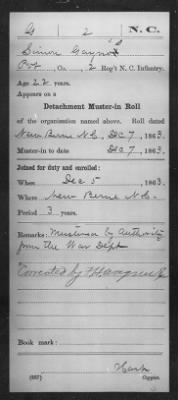 G 2 N. C.
Simon Gaynor
Pvt., Co. , 2 Reg't N. C. Infantry.
Age 22 years.
Appears on a
Detachment Muster-in Roll
of the organization named above. Roll dated
New Berne N.C., Dec 7, 1863.
Muster-in to date Dec 7, 1863.
Joined for duty and enrolled:
When Dec 5 , 1863.
Where New Berne N.C.
Period 3 years.
Remarks: Mustered by authority
from the War Dept
Book mark:
(887) Copyist.